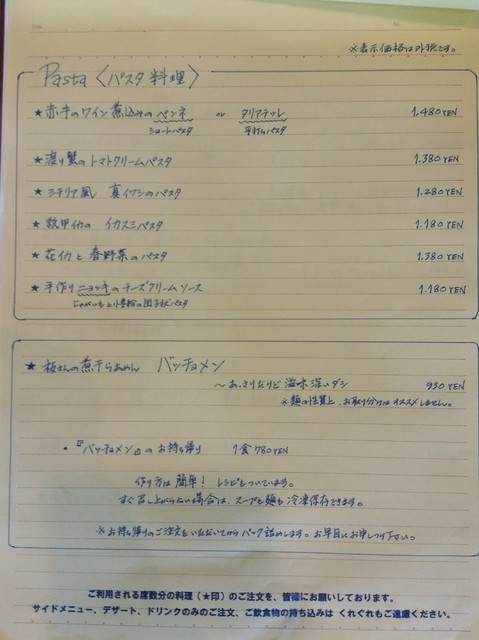 ※表示価格は外税です。
Pasta〈パスタ料理〉
★赤牛のワイン煮込みのペンネ or タリアテッレ 1.480YEN
ショートパスタ 平打ちパスタ
★渡り蟹のトマトクリームパスタ 1.380YEN
★シチリア風 真イワシのパスタ 1.280YEN
★紋甲イカの イカスミパスタ 1.180YEN
★花イカと春野菜のパスタ 1.380YEN
★手作りニョッキのチーズクリームソース 1.180YEN
じゃがいもと小麦粉の団子状パスタ
★板さんの煮干らぁめん バッチョメン
〜あっさりだけど滋味深いダシ 930YEN
※麺の性質上、お取り分けはオススメしません。
・『バッチョメン』のお持ち帰り 1食780YEN
作り方は簡単! レシピもついています。
すぐ召し上がらない場合は、スープも麺も冷凍保存できます。
※お持ち帰りのご注文をいただいてからパック詰めします。お早目にお申しつけ下さい。
ご利用される席数分の料理(★印)のご注文を、皆様にお願いしております。
サイドメニュー、デザート、ドリンクのみのご注文、ご飲食物の持ち込みは くれぐれもご遠慮ください。